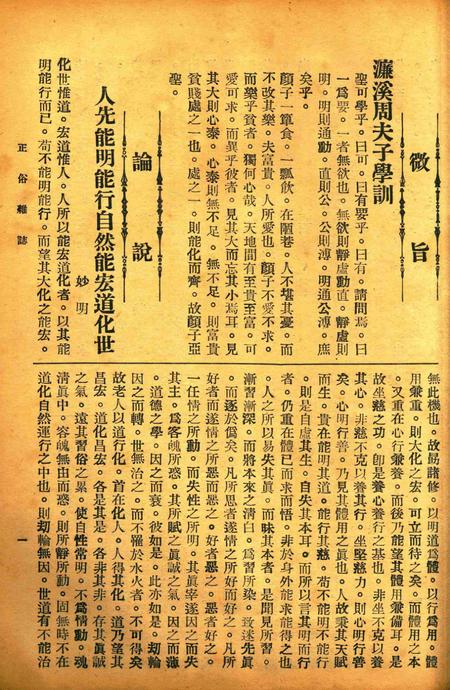 微旨
濂溪周夫子學訓
聖可學乎。曰可。曰有要乎。曰有。請問焉。曰
一爲要。一者無欲也。無欲則靜虛動直。靜虛則
明。明則通。動直則公。公則溥。明通公溥。庶
矣乎。
顏子一簞食。一瓢飲。在陋巷。人不堪其憂。而
不改其樂。夫富貴。人所愛也。顏子不愛不求。
而樂乎貧者。獨何心哉。天地間有至貴至富。可
愛可求。而異乎彼者。見其大而忘其小焉耳。見
其大則心泰。心泰則無不足。無不足。則富貴
貧賤處之一也。處之一。則能化而齊。故顏子亞
聖。
論說
人先能明能行自然能宏道化世
妙明
化世惟道。宏道惟人。人所以能宏道化者。以其能
明能行而已。苟不能明能行。而望其大化之能宏。
無此機也。故勗諸修。以明道爲體。以行爲用。體
用兼重。則大化之宏。可立而待之矣。而體用之本
。又重在心行兼養。而後乃能望其體用兼備耳。是
故坐慈之功。卽是養心養行之基也。非坐不克以養
其心。非慈不克以養其行。坐堅慈力。則心明行善
矣。心明行善。乃見其體用之眞也。人故秉其天賦
而生。貴在能明其道。能行其慈。苟不能明不能行
。則是自虛其生。自失其本耳。而所以言其明而行
者。仍重在體已而求而悟。非於身外能求能得之也
。人之所以易失其眞。而昧其本者。是聞見所習。
漸習漸深。而將本來之清白。爲習所染。致迷先眞
。而逐於僞矣。凡所思者遂情之所好而好之。凡所
好者而遂情之所惡而惡之。好者惡之。惡者好之。
一任情之所動。而失性之所明。其眞宰遂因之而失
其主。爲客魄所惑。其所賦之眞誠之氣。因之而濁
。道德之學。因之而衰。彼如是。此亦如是。劫輪
因之而轉。世無法治之。而不罹於水火者。不可得矣
故老人以道行化。首在化人。人得其化。道乃望其
昌宏。道化昌宏。各是其是。各非其非。存其眞誠
之氣。遠其習俗之累。使自性常明。不爲情動。魂
清眞中。容魄無由而惑。則所靜所動。固無時不在
道化自然運行之中也。則劫輪無因。世道有不能治
正俗雜誌
一